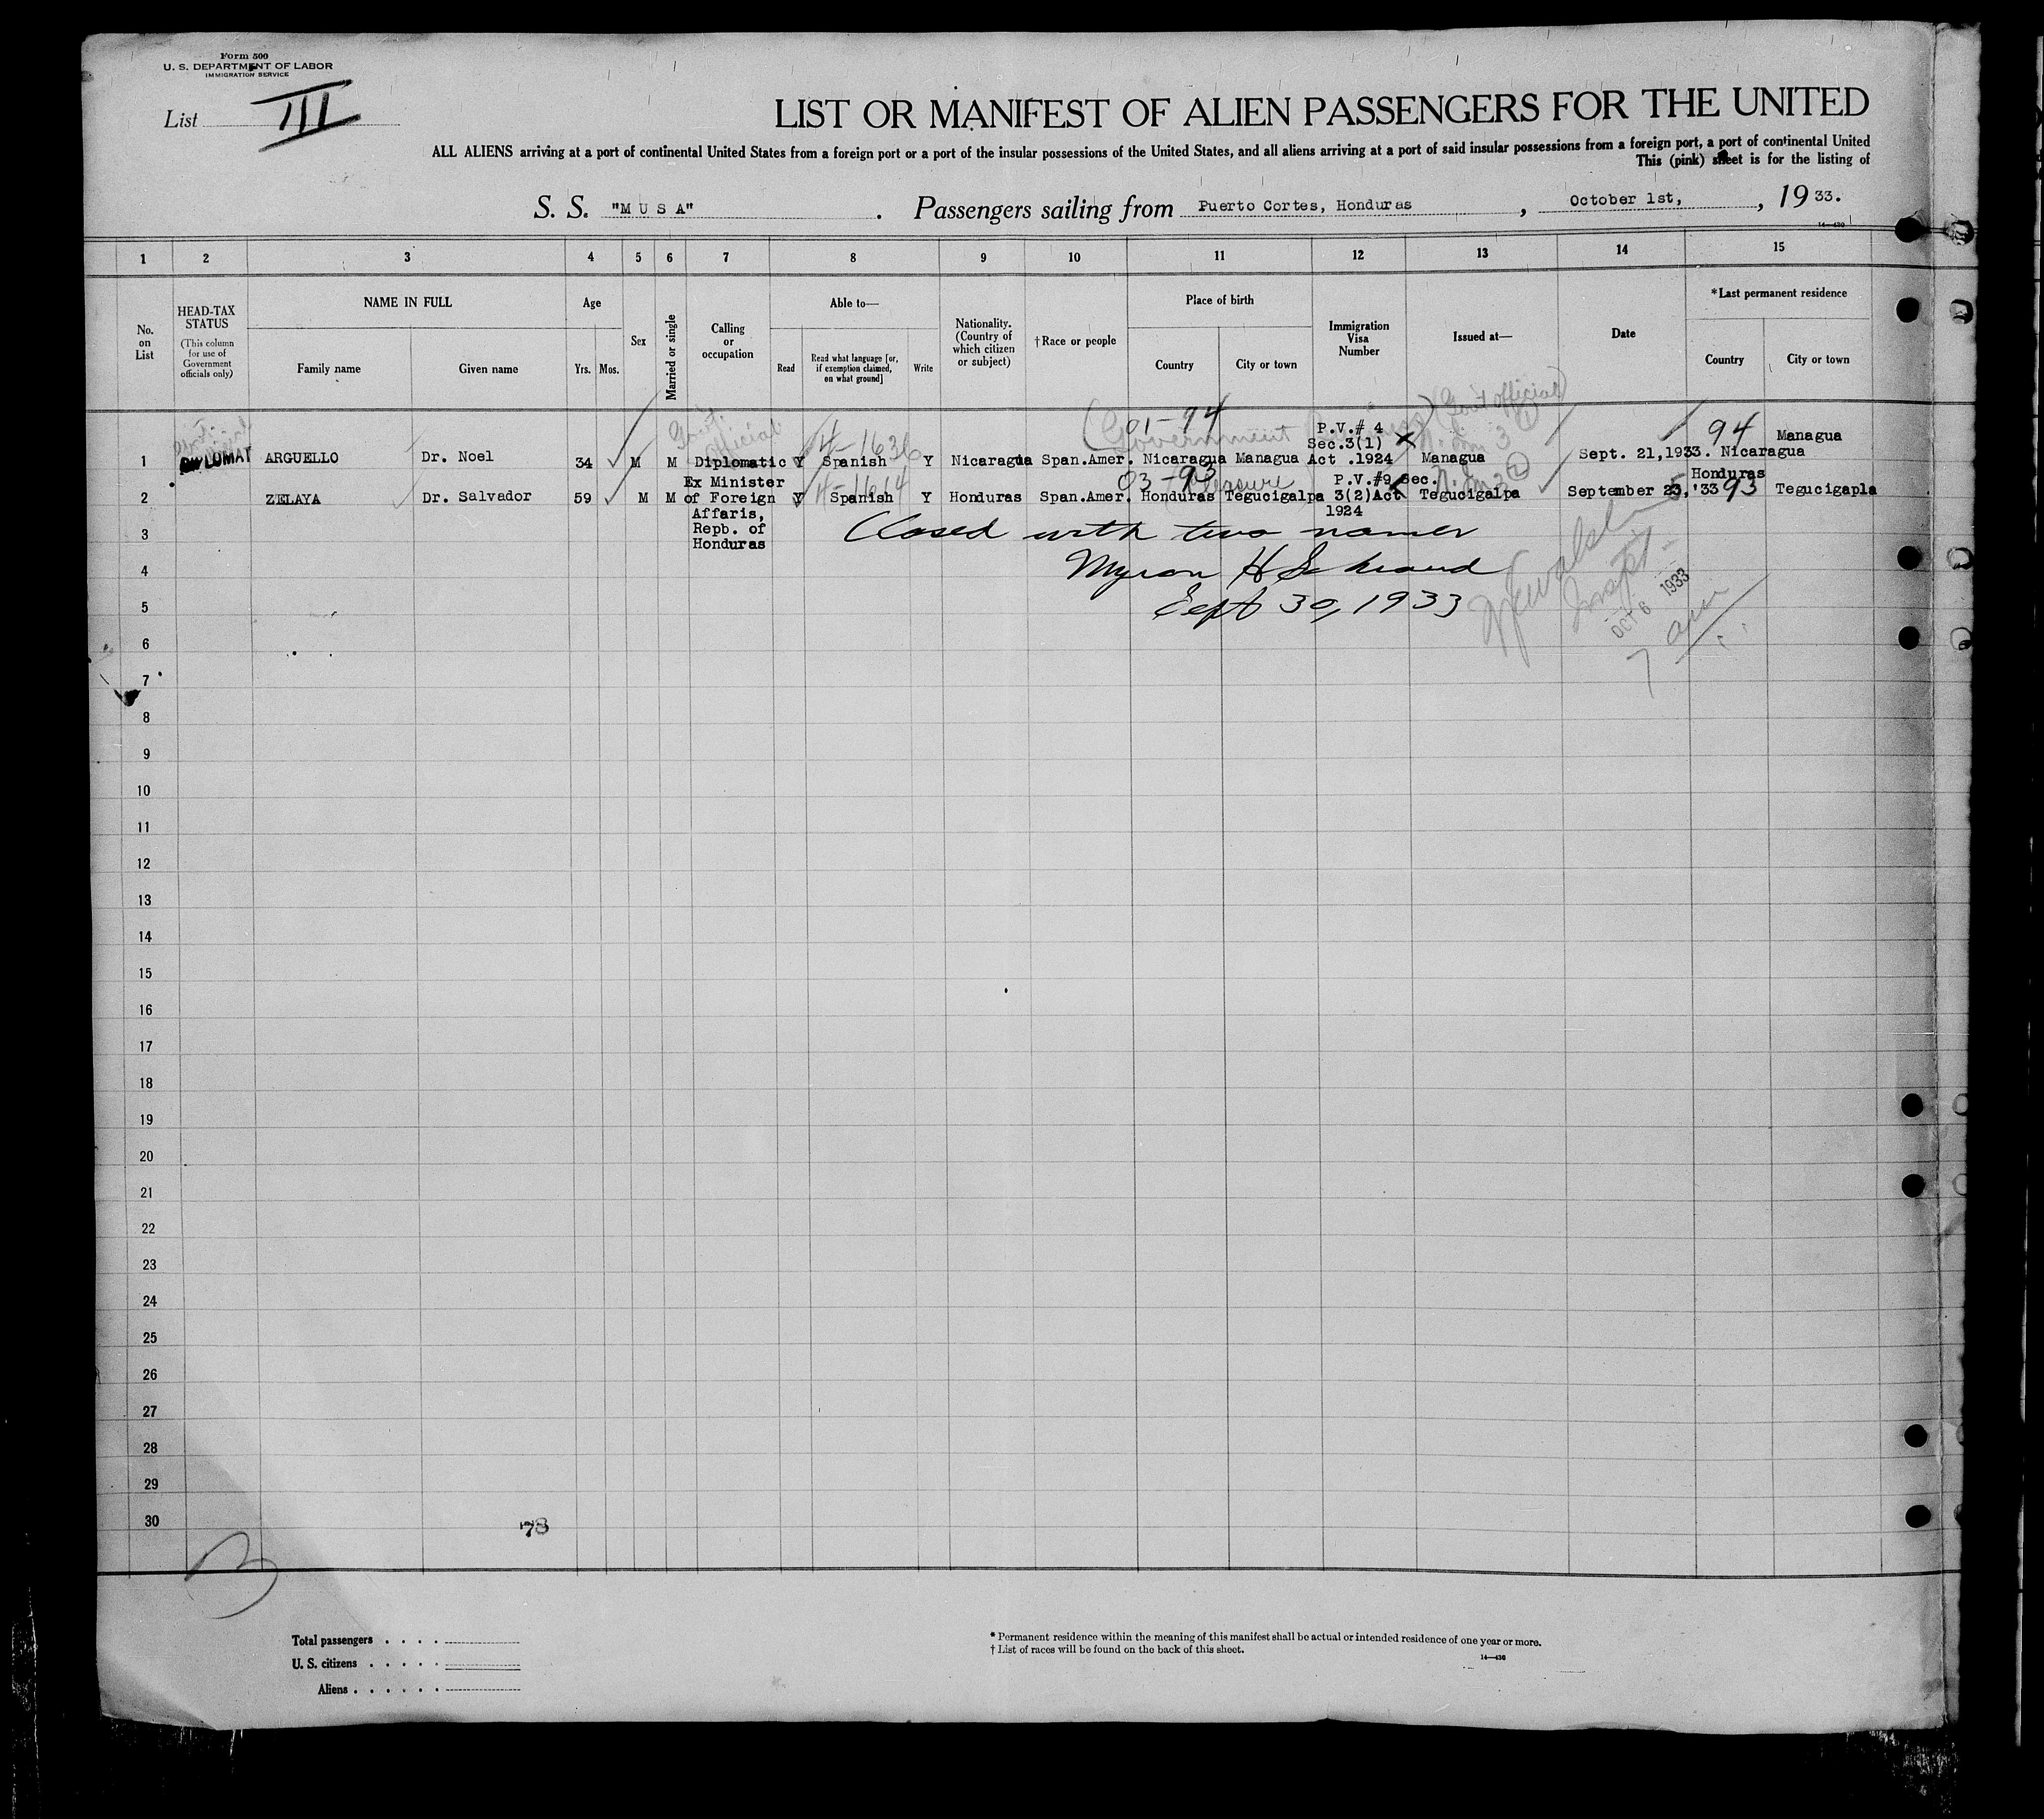 Form 500
U. S. DEPARTMENT OF LABOR
IMMIGRATION SERVICE
List III
LIST OR MANIFEST OF ALIEN PASSENGERS FOR THE UNITED
ALL ALIENS arriving at a port of continental United States from a foreign port or a port of the insular possessions of the United States, and all aliens arriving at a port of said insular possessions from a foreign port, a port of continental United
This (pink) sheet is for the listing of
S. S. "M U S A". Passengers sailing from Puerto Cortes, Honduras, October 1st, , 19 33.
14—430
1 2 3 4 5 6 7 8 9 10 11 12 13 14 15
No. on List
HEAD-TAX STATUS (This column for use of Government officials only)
NAME IN FULL
Family name Given name
Age
Yrs. Mos.
Sex
Married or single
Calling or occupation
Able to—
Read
Read what language [or, if exemption claimed, on what ground]
Write
Nationality. (Country of which citizen or subject)
†Race or people
Place of birth
Country City or town
Immigration Visa Number
Issued at—
Date
*Last permanent residence
Country City or town
Gov't. Official
(Government Gov't official)
01-94
4-1636
P.V.# 4
Sec.3(1)
94 Managua
1 DIPLOMAT ARGUELLO Dr. Noel 34 M M Diplomatic Y Spanish Y Nicaragua Span.Amer. Nicaragua Managua Act .1924 Managua Sept. 21,1933. Nicaragua
Ex Minister
03-93 Pleasure
4-1614
P.V.#9 Sec.
Honduras
2 ZELAYA Dr. Salvador 59 M M of Foreign Y Spanish Y Honduras Span.Amer. Honduras Tegucigalpa 3(2)Act Tegucigalpa September 23,'33 93 Tegucigapla
Affaris,
1924
Repb. of
Honduras
3 Closed with two names
4 Myron H
5 Sept 30, 1933
OCT 6 1933
7 am
6
7
8
9
10
11
12
13
14
15
16
17
18
19
20
21
22
23
24
25
26
27
28
29
30
78
Total passengers . . . .
U. S. citizens . . . . .
Aliens . . . . . .
* Permanent residence within the meaning of this manifest shall be actual or intended residence of one year or more.
† List of races will be found on the back of this sheet.
14—430